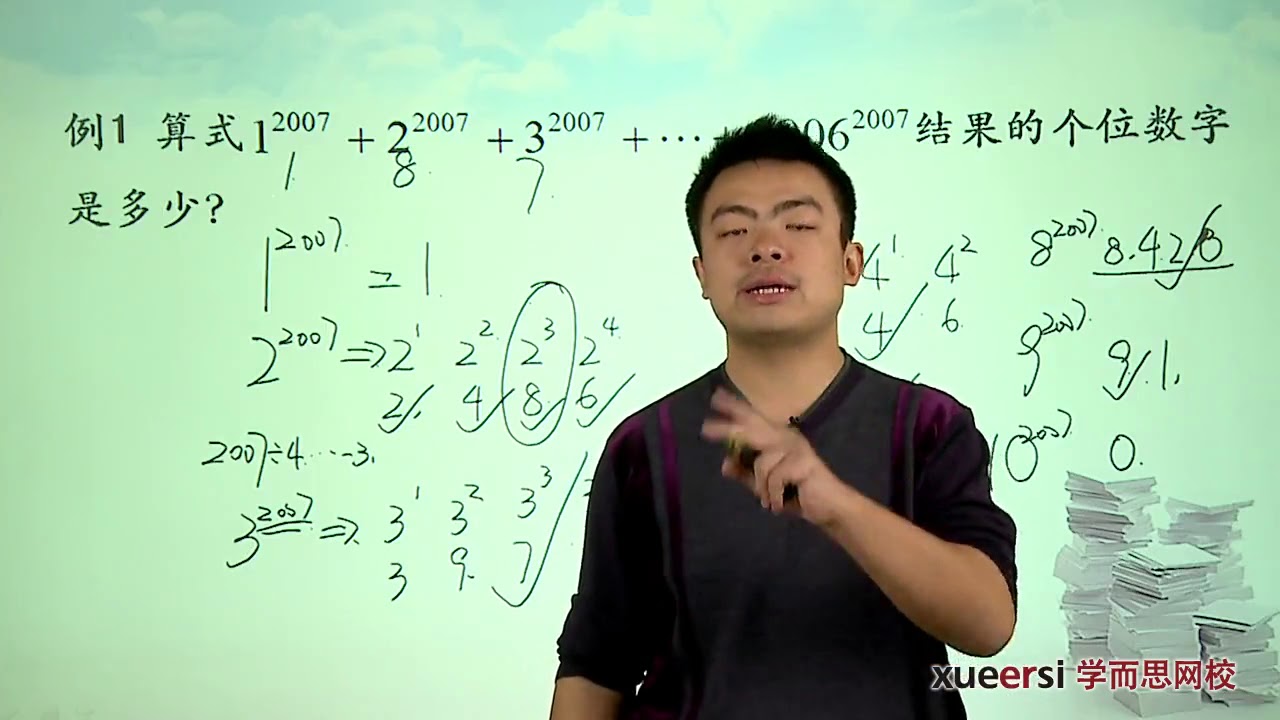 例1 算式1^2007 + 2^2007 + 3^2007 + ⋯ 06^2007 结果的个位数字
1 8 7
是多少?
1^2007 = 1
4^1 4^2
8^2007 8.4.2.6
4 6
2^2007 ⇒ 2^1 2^2 2^3 2^4
9^2007 9 1
2 4 8 6
2007÷4⋯3
10^2007 0
3^2007 ⇒ 3^1 3^2 3^3
3 9 7
xueersi 学而思网校